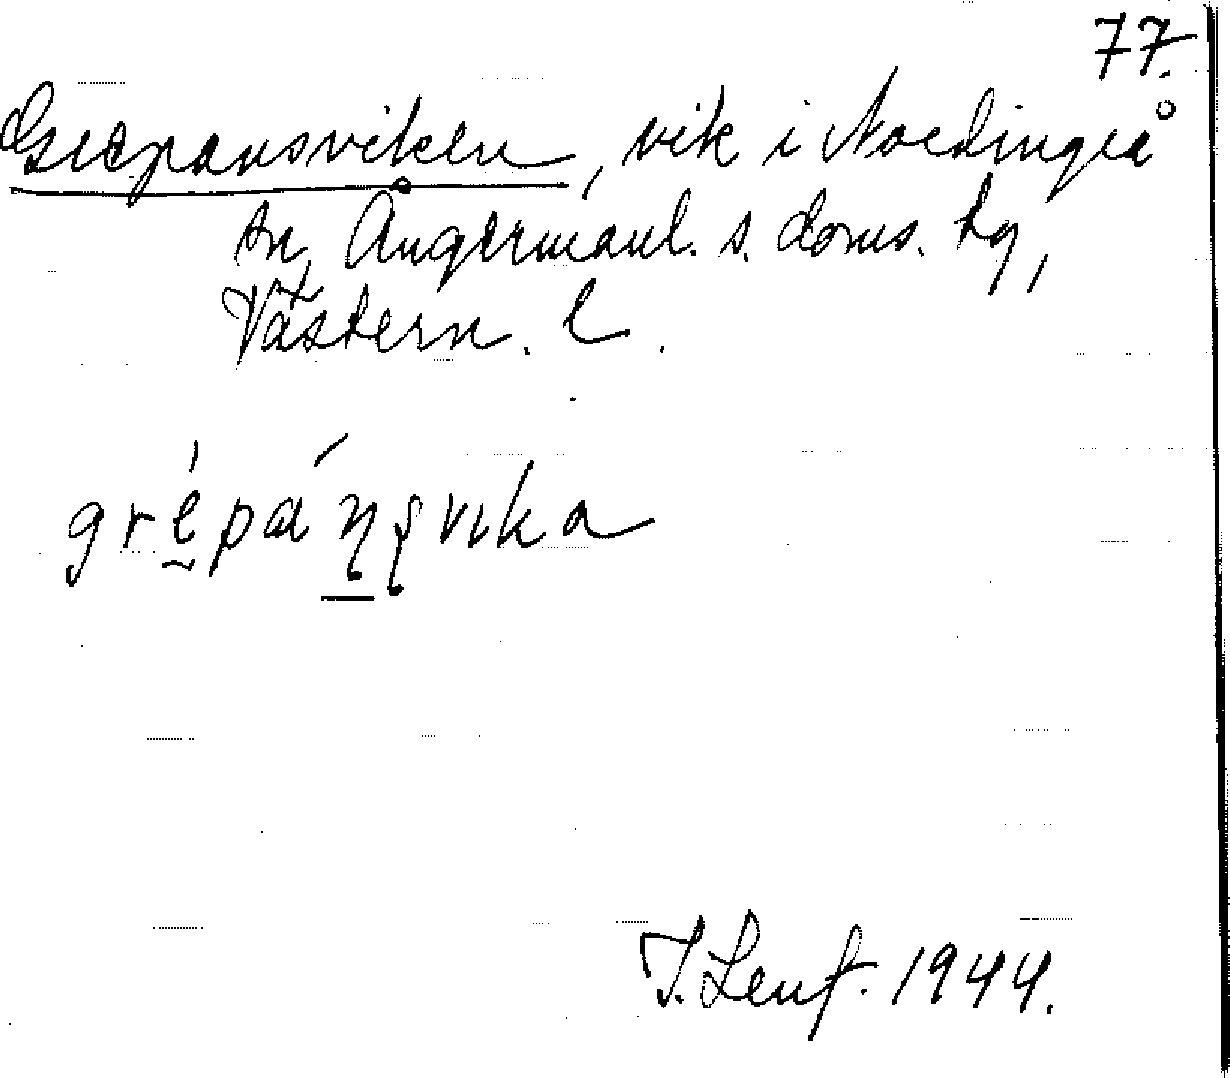 77.
Grepansviken, vik i Nordingrå
sn, Ångermanl. s. doms. tg,
Västern. l.
grépáṇṣvika
J. Lenf. 1944.